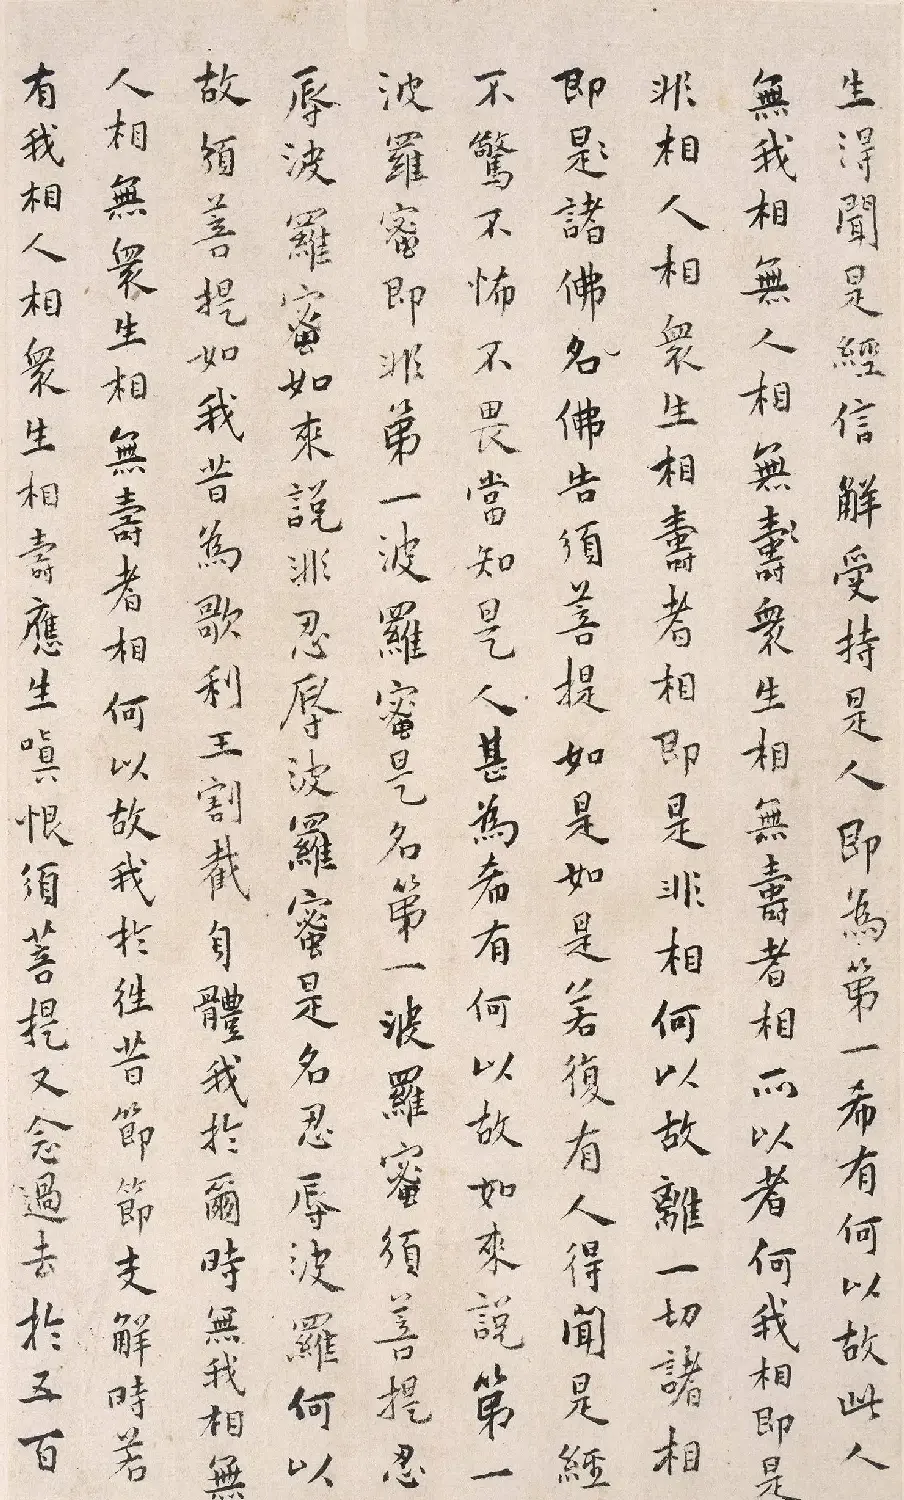 生得聞是經信解受持是人即為第一希有何以故此人
無我相無人相無壽衆生相無壽者相所以者何我相即是
非相人相衆生相壽者相即是非相何以故離一切諸相
即是諸佛名佛告須菩提如是如是若復有人得聞是經
不驚不怖不畏當知是人甚為希有何以故如來說第一
波羅蜜即非第一波羅蜜是名第一波羅蜜須菩提忍
辱波羅蜜如來說非忍辱波羅蜜是名忍辱波羅何以
故須菩提如我昔為歌利王割截身體我於爾時無我相無
人相無衆生相無壽者相何以故我於往昔節節支解時若
有我相人相衆生相壽應生嗔恨須菩提又念過去於五百